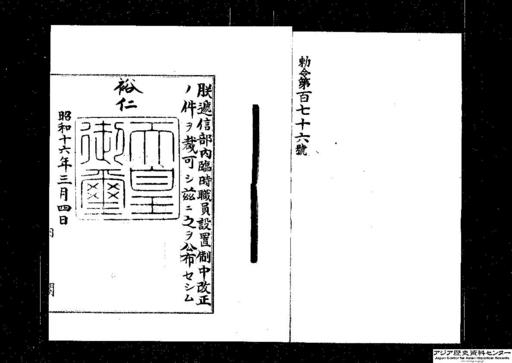 勅令第百七十六號
朕遞信部內臨時職員設置制中改正
ノ件ヲ裁可シ茲ニ之ヲ公布セシム
裕仁
天皇御璽
昭和十六年三月四日
アジア歴史資料センター
Japan Center for Asian Historical Records